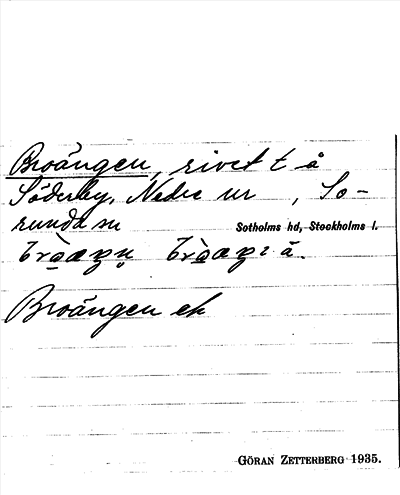 Broängen, rivet t å
Söderby, Nedre nr , So-
runda sn Sotholms hd, Stockholms l.
Broängen ek
GÖRAN ZETTERBERG 1935.